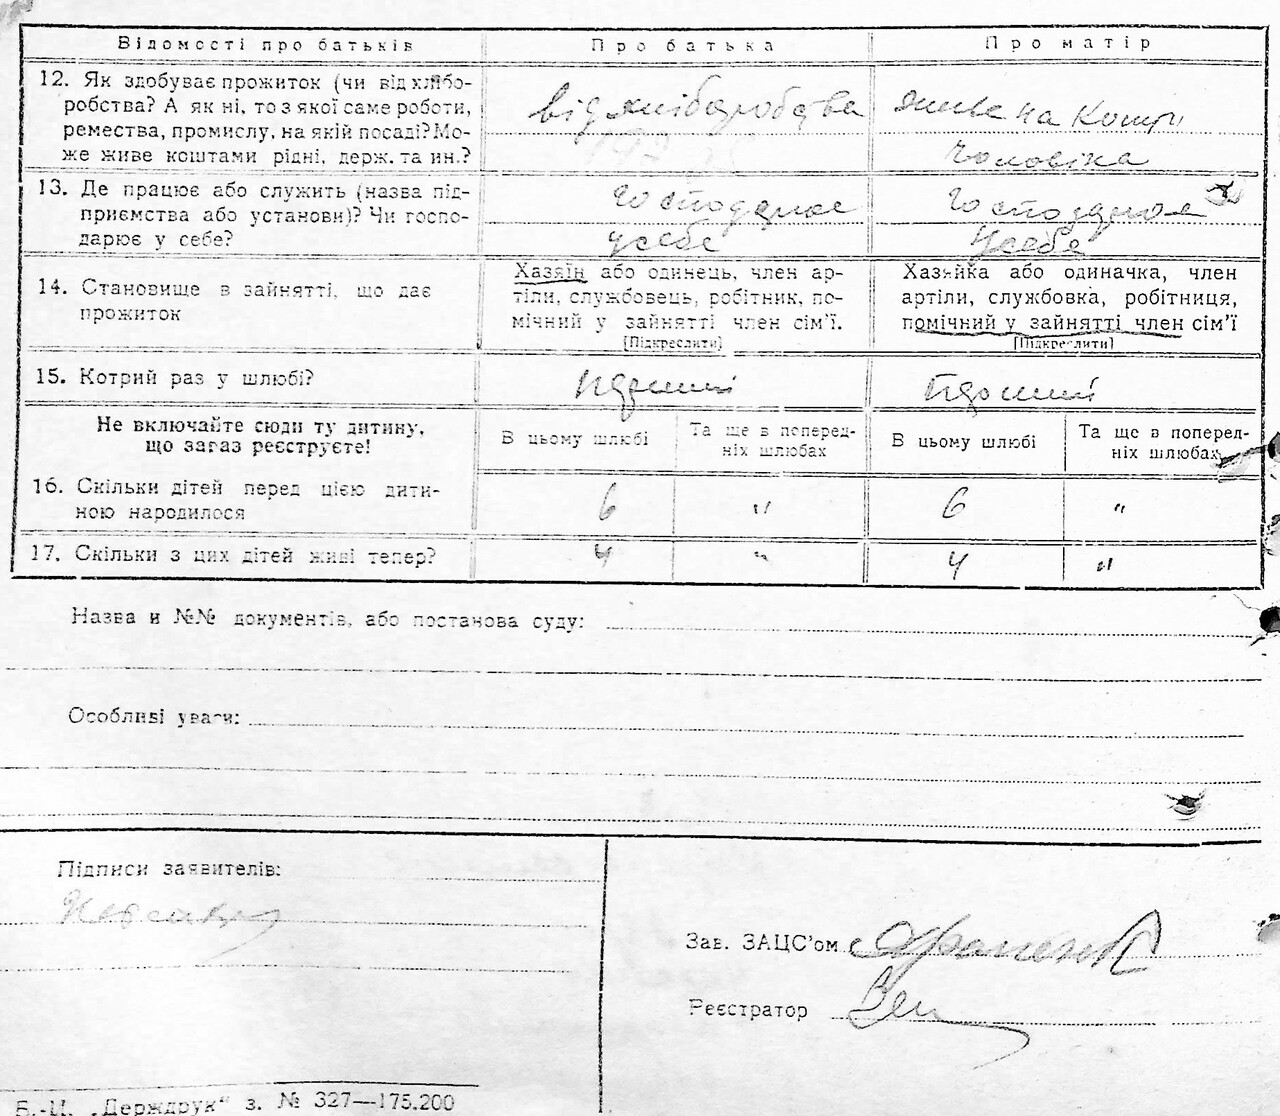 Відомості про батьків
Про батька
Про матір
12. Як здобуває прожиток (чи від хлібо-
робства? А як ні, то з якої саме роботи,
ремества, промислу, на якій посаді? Мо-
же живе коштами рідні, держ. та ин.?
від хліборобства
живе на кошти
чоловіка
13. Де працює або служить (назва під-
приємства або установи)? Чи госпо-
дарює у себе?
господарює
у себе
господарює
у себе
14. Становище в зайнятті, що дає
прожиток
Хазяїн або одинець, член ар-
тіли, службовець, робітник, по-
мічний у зайнятті член сім'ї.
[Підкреслити]
Хазяйка або одиначка, член
артіли, службовка, робітниця,
помічний у зайнятті член сім'ї
[Підкреслити]
15. Котрий раз у шлюбі?
перший
перший
Не включайте сюди ту дитину,
що зараз реєструєте!
В цьому шлюбі
Та ще в поперед-
ніх шлюбах
В цьому шлюбі
Та ще в поперед-
ніх шлюбах
16. Скільки дітей перед цією дити-
ною народилося
6 " 6 "
17. Скільки з цих дітей живі тепер?
4 " 4 "
Назва и №№ документів, або постанова суду:
Особливі уваги:
Підписи заявителів:
Зав. ЗАЦС'ом
Реєстратор
Б.-Ц. „Держдрук“ з. № 327—175.200